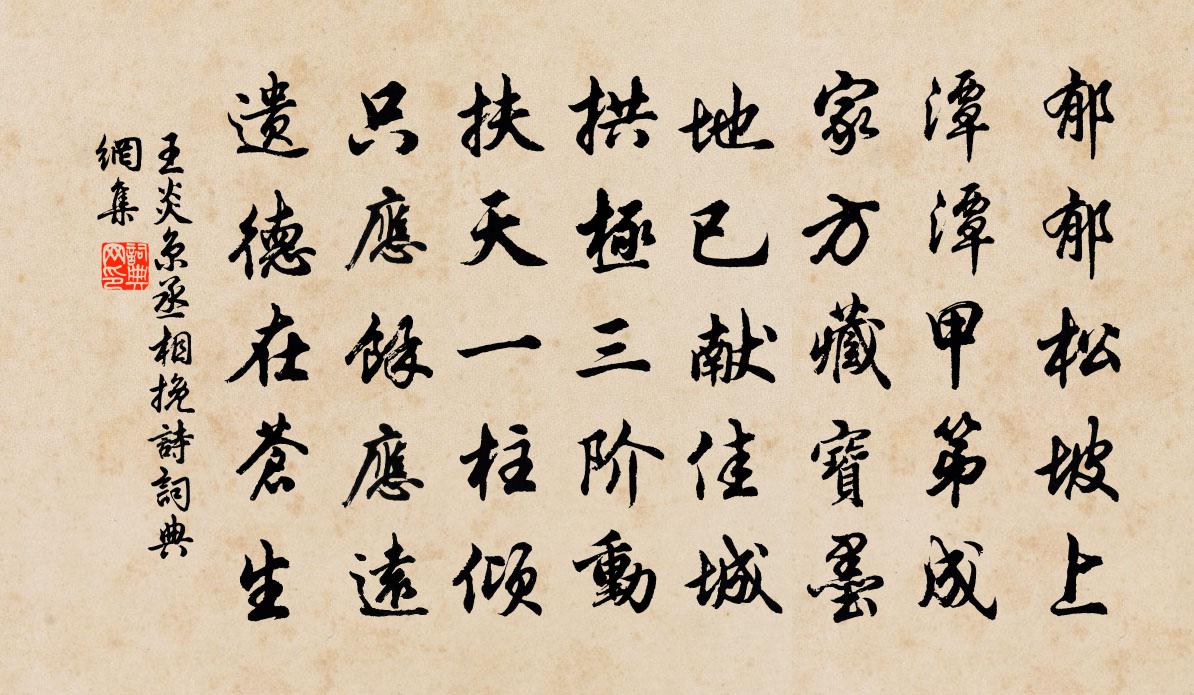 郁郁松坡上
潭潭甲第成
家方藏寶墨
地已献佳城
拱極三阶動
扶天一柱傾
只應餘應遠
遺德在蒼生
王炎京丞相挽詩詞典
網集
詞典
网印